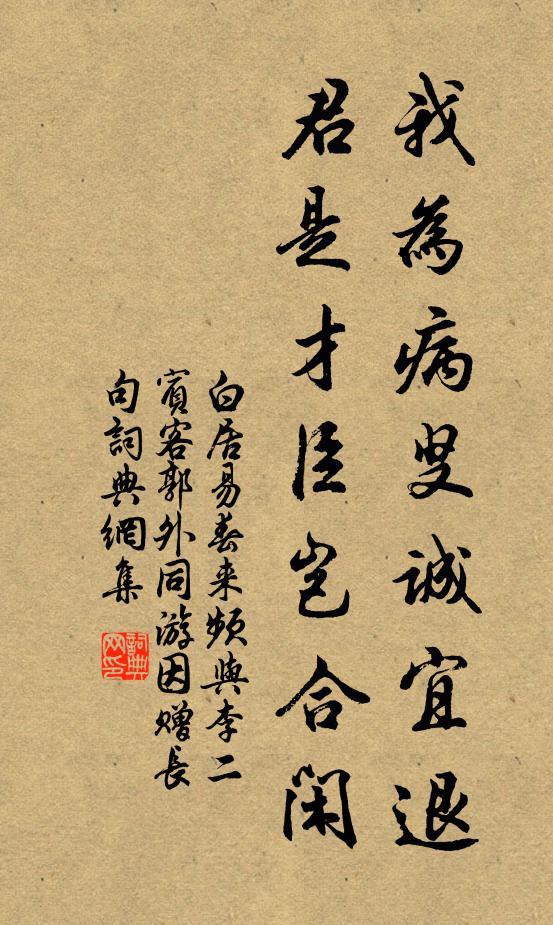 我為病叟誠宜退
君是才臣豈合閑
白居易春来頻與李二
賓客郭外同游因贈長
句詞典網集
詞典
网印